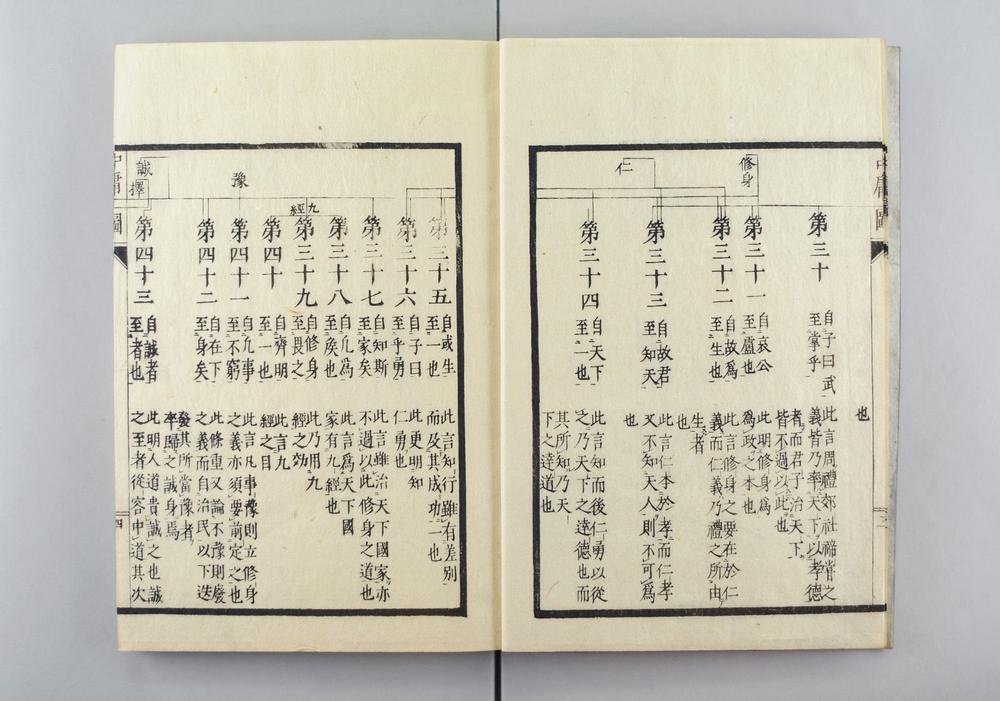 中庸圖
修身
仁
也
第三十
自子曰武
至掌乎
此言周禮郊社禘嘗之
義皆乃率天下以孝德
者而君子治天下
皆不過以此也
第三十一
自哀公
至盧也
此明修身爲
爲政之本也
第三十二
自故爲
至生也
此言修身之要在於仁
義而仁義乃禮之所由
生者
也
第三十三
自故君
至知天
此言仁本於孝而仁孝
又不知天人則不可爲
也
第三十四
自天下
至一也
此言知而後仁勇以從
之乃天下之達德也而
其所知乃天
下之達道也
豫
誠
擇
九經
第三十五
自或生
至一也
此言知行雖有差別
而及其成功一也
第三十六
自子曰
至乎勇
此更明知
仁勇也
第三十七
自知斯
至家矣
此言雖治天下國家亦
不過以此修身之道也
第三十八
自凡爲
至矦也
此言爲天下國
家有九經也
第三十九
自修身
至畏之
此乃用九
經之効
第四十
自齊明
至一也
此言九
經之目
第四十一
自凡事
至不窮
此言凡事豫則立修身
之義亦須要前定之也
第四十二
自在下
至身矣
此條重又論不豫則廢
之義而自治民以下迭
發其所當豫者
卒歸之誠身焉
第四十三
自誠者
至者也
此明人道貴誠之也誠
之至者從容中道其次
中庸圖
四